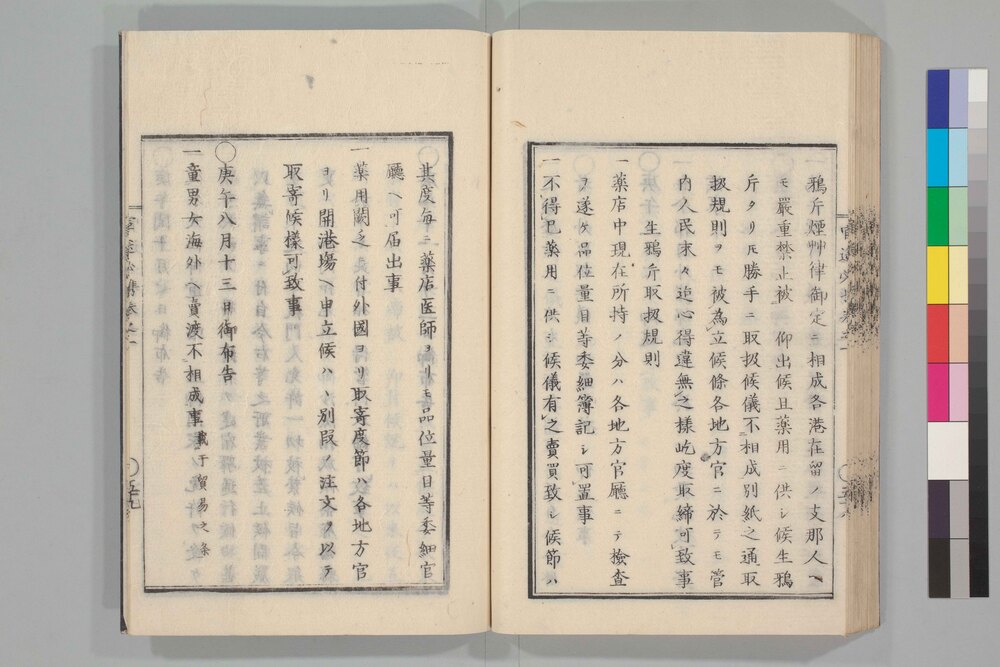 鴉片煙艸律御定ニ相成各港在留ノ支那人ヘ
モ嚴重禁止被　仰出候且薬用ニ供シ候生鴉
片タリ圧勝手ニ取扱候儀不相成別紙之通取
扱規則ヲモ被為立候條各地方官ニ於テモ管
内人民末々迄心得違無之様屹度取締可致事
生鴉片取扱規則
一薬店中現在所持ノ分ハ各地方官廳ニテ撿査
ヲ遂ケ品位量目等委細簿記シ可置事
一不得已薬用ニ供シ候儀有之賣買致シ候節ハ
其度毎ニ薬店医師ヨリモ品位量目等委細官
廳ヘ可届出事
一薬用闕乏ニ付外國ヨリ取寄度節ハ各地方官
ヨリ開港場ヘ申立候ハヽ別段ノ注文ヲ以テ
取寄候様可致事
〇庚午八月十三日御布告
一童男女海外ヘ賣渡不相成事載于貿易之条